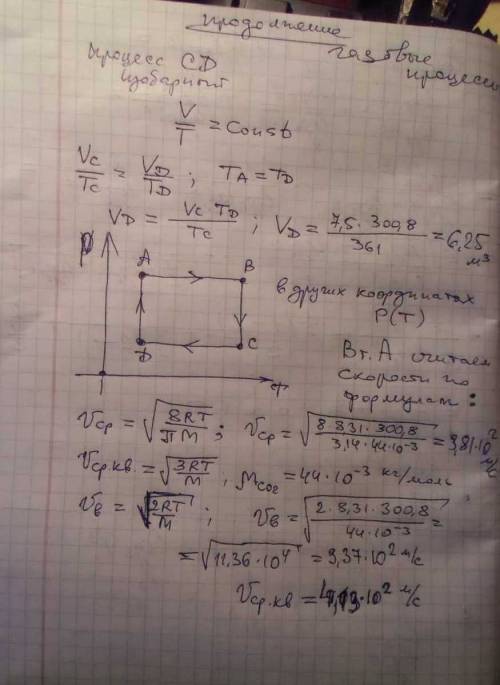 продолжение
газовые процессы
процесс CD
изобарный
V/T = Const
Vc/Tc = VD/TD ; TA = TD
VD = Vc · TD / Tc ; VD = 7,5 · 300,8 / 361 = 6,25 м³
P
A B
D C
в других координатах
P(T)
В т. A считаем
скорости по
формулам :
Vср = √(8RT/ПM) ; Vср = √(8·831·300,8 / 3,14·44·10⁻³) = 3,81·10² м/с
Vср.кв. = √(3RT/M) , Mco₂ = 44·10⁻³ кг/моль
Vв = √(2RT/M) ; Vв = √(2·8,31·300,8 / 44·10⁻³) =
= √(11,36·10⁴) = 3,37·10² м/с
Vср.кв = 4,13·10² м/с